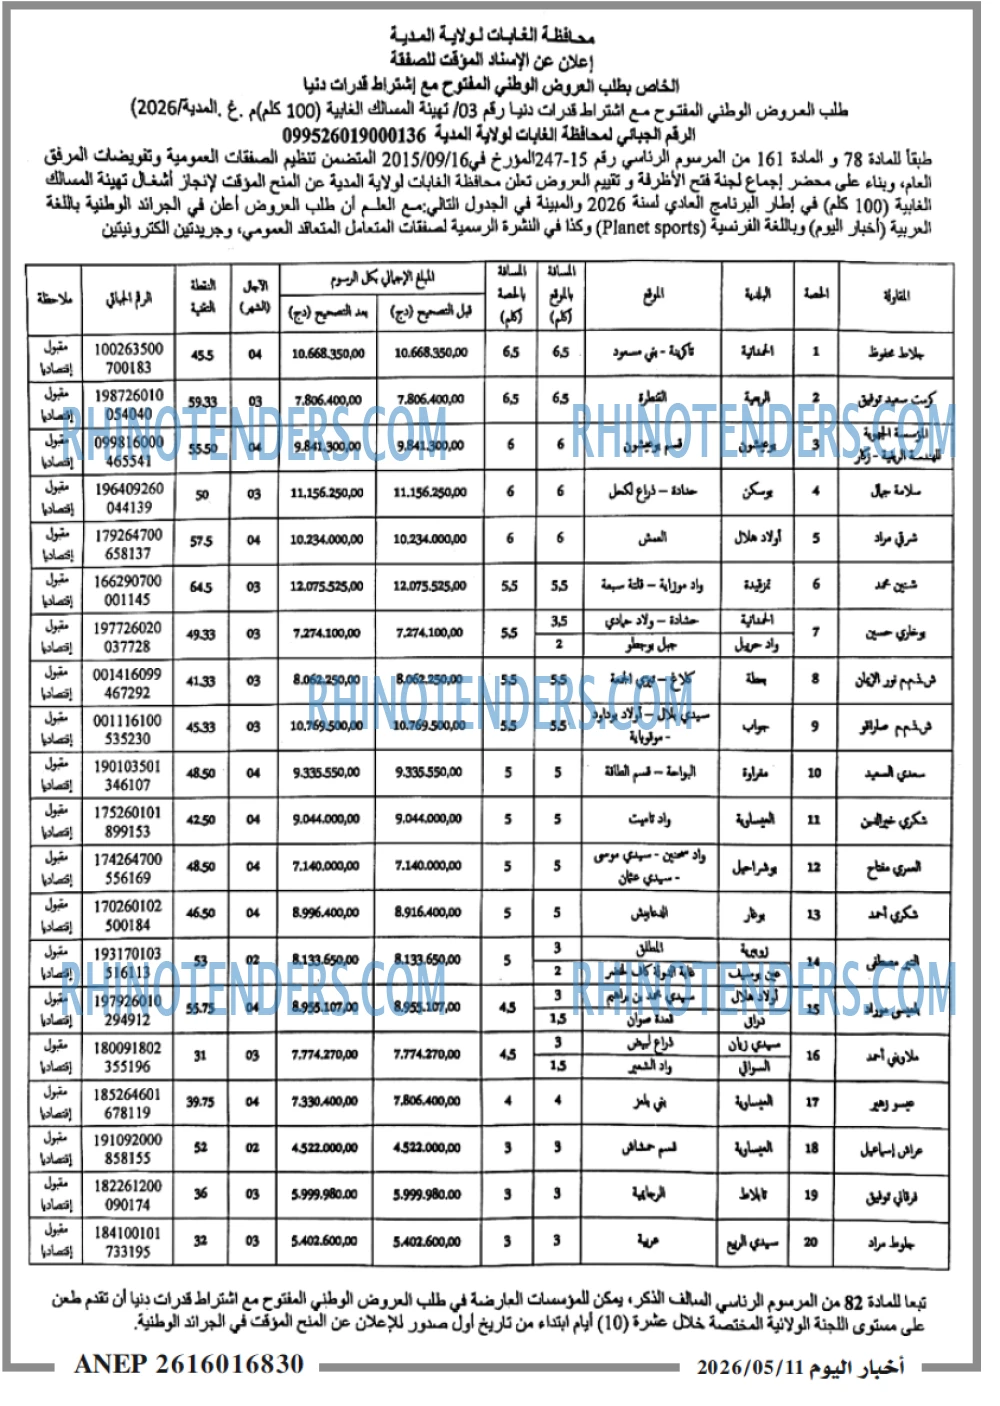 محافظة الغابات لولاية المدية
إعلان عن الإسناد المؤقت للصفقة
الخاص بطلب العروض الوطني المفتوح مع إشتراط قدرات دنيا
طلب العروض الوطني المفتوح مع اشتراط قدرات دنيا رقم 03/ تهيئة المسالك الغابية (100 كلم)م .غ .المدية/2026)
الرقم الجبائي لمحافظة الغابات لولاية المدية 099526019000136
طبقاً للمادة 78 و المادة 161 من المرسوم الرئاسي رقم 15-247المؤرخ في2015/09/16 المتضمن تنظيم الصفقات العمومية وتفويضات المرفق
العام، وبناء على محضر إجماع لجنة فتح الأظرفة و تقييم العروض تعلن محافظة الغابات لولاية المدية عن المنح المؤقت لإنجاز أشغال تهيئة المسالك
الغابية (100 كلم) في إطار البرنامج العادي لسنة 2026 والمبينة في الجدول التالي:مع العلم أن طلب العروض أعلن في الجرائد الوطنية باللغة
العربية (أخبار اليوم) وباللغة الفرنسية (Planet sports) وكذا في النشرة الرسمية لصفقات المتعامل المتعاقد العمومي، وجريدتين الكترونيتين
المقاولة الحصة البلدية الموقع المسافة بالموقع (كلم) المسافة بالحصة (كلم) المبلغ الإجمالي بكل الرسوم قبل التصحيح (دج) بعد التصحيح (دج) الآجال (الشهر) النقطة التقنية الرقم الجبائي ملاحظة
جلاط محفوظ 1 الحمدانية تاكرينة - بني مسعود 6,5 6,5 10.668.350,00 10.668.350,00 04 45.5 100263500700183 مقبول إقتصاديا
كريت سعيد توفيق 2 الربعية القنطرة 6,5 6,5 7.806.400,00 7.806.400,00 03 59.33 198726010054040 مقبول إقتصاديا
المؤسسة الجهوية للهندسة الريفية - زكار 3 بوعيشون قسم بوعيشون 6 6 9.841.300,00 9.841.300,00 04 55.50 099816000465541 مقبول إقتصاديا
سلامة جمال 4 بوسكن حدادة - ذراع لكحل 6 6 11.156.250,00 11.156.250,00 03 50 196409260044139 مقبول إقتصاديا
شرقي مراد 5 أولاد هلال العش 6 6 10.234.000,00 10.234.000,00 04 57.5 179264700658137 مقبول إقتصاديا
شنين محمد 6 تمزقيدة واد موزاية - فلتة سبعة 5,5 5,5 12.075.525,00 12.075.525,00 03 64.5 166290700001145 مقبول إقتصاديا
بوخاري حسين 7 الحمدانية حشادة - ولاد حمادي 3,5 واد حربيل جبل بوجطو 2 5,5 7.274.100,00 7.274.100,00 03 49.33 197726020037728 مقبول إقتصاديا
ش.ذ.م.م نور الإيمان 8 بعطة كلاغ - تيزي الجمعة 5,5 5,5 8.062.250,00 8.062.250,00 03 41.33 001416099467292 مقبول إقتصاديا
ش.ذ.م.م 9 جواب سيدي بلال - أولاد بوداود - موقوباية 5,5 5,5 10.769.500,00 10.769.500,00 03 45.33 001116100535230 مقبول إقتصاديا
سعدي السعيد 10 مغراوة البواحة - قسم الطاقة 5 5 9.335.550,00 9.335.550,00 04 48.50 190103501346107 مقبول إقتصاديا
شكري خير الدين 11 العيساوية واد تاميت 5 5 9.044.000,00 9.044.000,00 04 42.50 175260101899153 مقبول إقتصاديا
العمري مفتاح 12 بوشراحيل - سيدي موسى - سيدي عثمان 5 5 7.140.000,00 7.140.000,00 04 48.50 174264700556169 مقبول إقتصاديا
شكري أحمد 13 بوغار 5 5 8.916.400,00 8.996.400,00 04 46.50 170260102500184 مقبول إقتصاديا
مصطفى 14 زوبيرية المطلق 3 عين بوسيف غابة الدولة كاف لخضر 2 5 8.133.650,00 8.133.650,00 02 53 193170103516113 مقبول إقتصاديا
15 أولاد هلال سيدي محمد بن براهيم 3 دراق 1,5 4,5 8.955.107,00 8.955.107,00 04 55.75 197926010294912 مقبول إقتصاديا
ملاويني أحمد 16 سيدي زيان ذراع لبيض 3 السواقي واد الشعير 1,5 4,5 7.774.270,00 7.774.270,00 03 31 180091802355196 مقبول إقتصاديا
عيسو زهير 17 العيساوية بني يلمز 4 4 7.806.400,00 7.330.400,00 04 39.75 185264601678119 مقبول إقتصاديا
عراش إسماعيل 18 العيساوية قسم حمشاش 3 3 4.522.000,00 4.522.000,00 02 52 191092000858155 مقبول إقتصاديا
فرقاني توفيق 19 تابلاط الرجايمية 3 3 5.999.980.00 5.999.980.00 03 36 182261200090174 مقبول إقتصاديا
جلوط مراد 20 سيدي الربيع عربية 3 3 5.402.600,00 5.402.600,00 03 32 184100101733195 مقبول إقتصاديا
تبعا للمادة 82 من المرسوم الرئاسي السالف الذكر، يمكن للمؤسسات العارضة في طلب العروض الوطني المفتوح مع اشتراط قدرات دنيا أن تقدم طعن
على مستوى اللجنة الولائية المختصة خلال عشرة (10) أيام ابتداء من تاريخ أول صدور للإعلان عن المنح المؤقت في الجرائد الوطنية.
ANEP 2616016830
أخبار اليوم 2026/05/11
RHINOTENDERS.COM
RHINOTENDERS.COM
RHINOTENDERS.COM
RHINOTENDERS.COM
RHINOTENDERS.COM